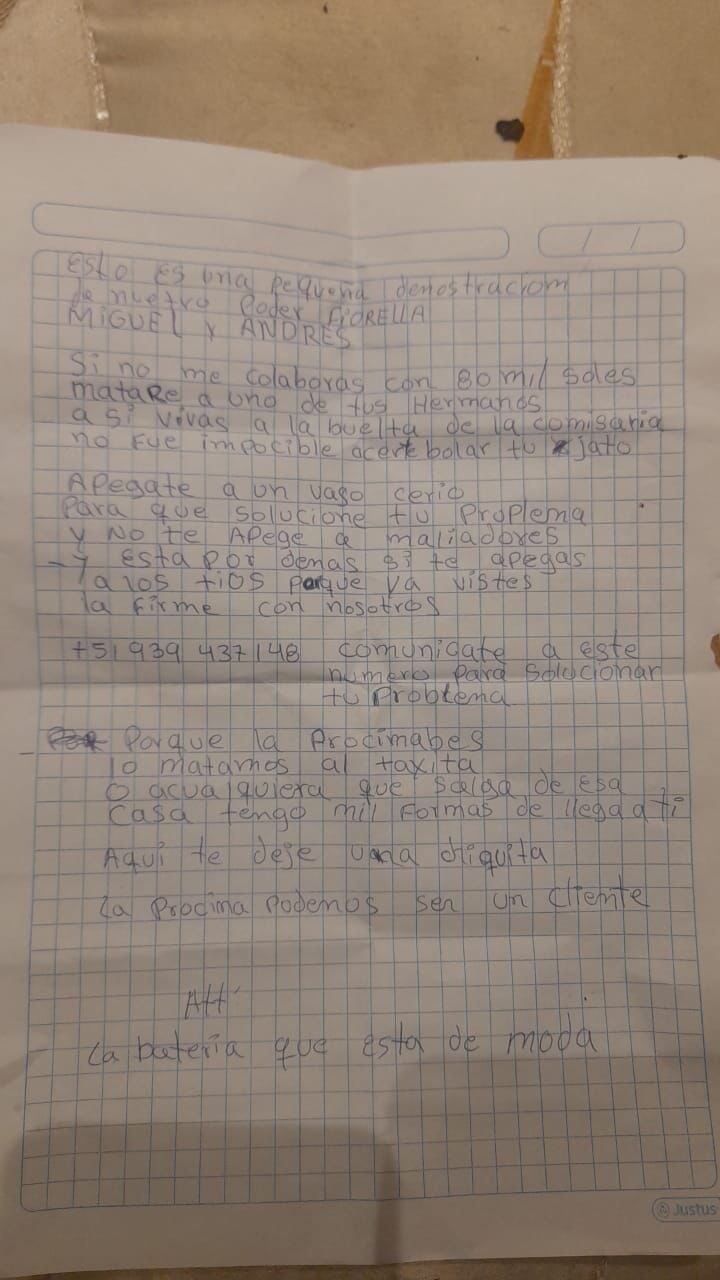 Esto es una pequeña demostraciom
de nuetro Poder FIORELLA
MIGUEL Y ANDRES
Si no me colaboras con 80 mil soles
matare a uno de tus Hermanos
a si vivas a la buelta de la comisaria
no fue impocible acerte bolar tu jato
Apegate a un vago cerio
Para que solucione tu proplema
y No te Apege a maliadores
- y esta por demas si te apegas
a los tios porque ya vistes
la firme con nosotros
+51 939 437 148 comunigate a este
numero para solucionar
tu problema
- Porque la Procimabes
lo matamos al taxita
o acualquiera que salga de esa
casa tengo mil formas de llega a ti
Aqui te deje una chiquita
La Procima Podemos ser un cliente
Att'
La bateria que esta de moda
Justus